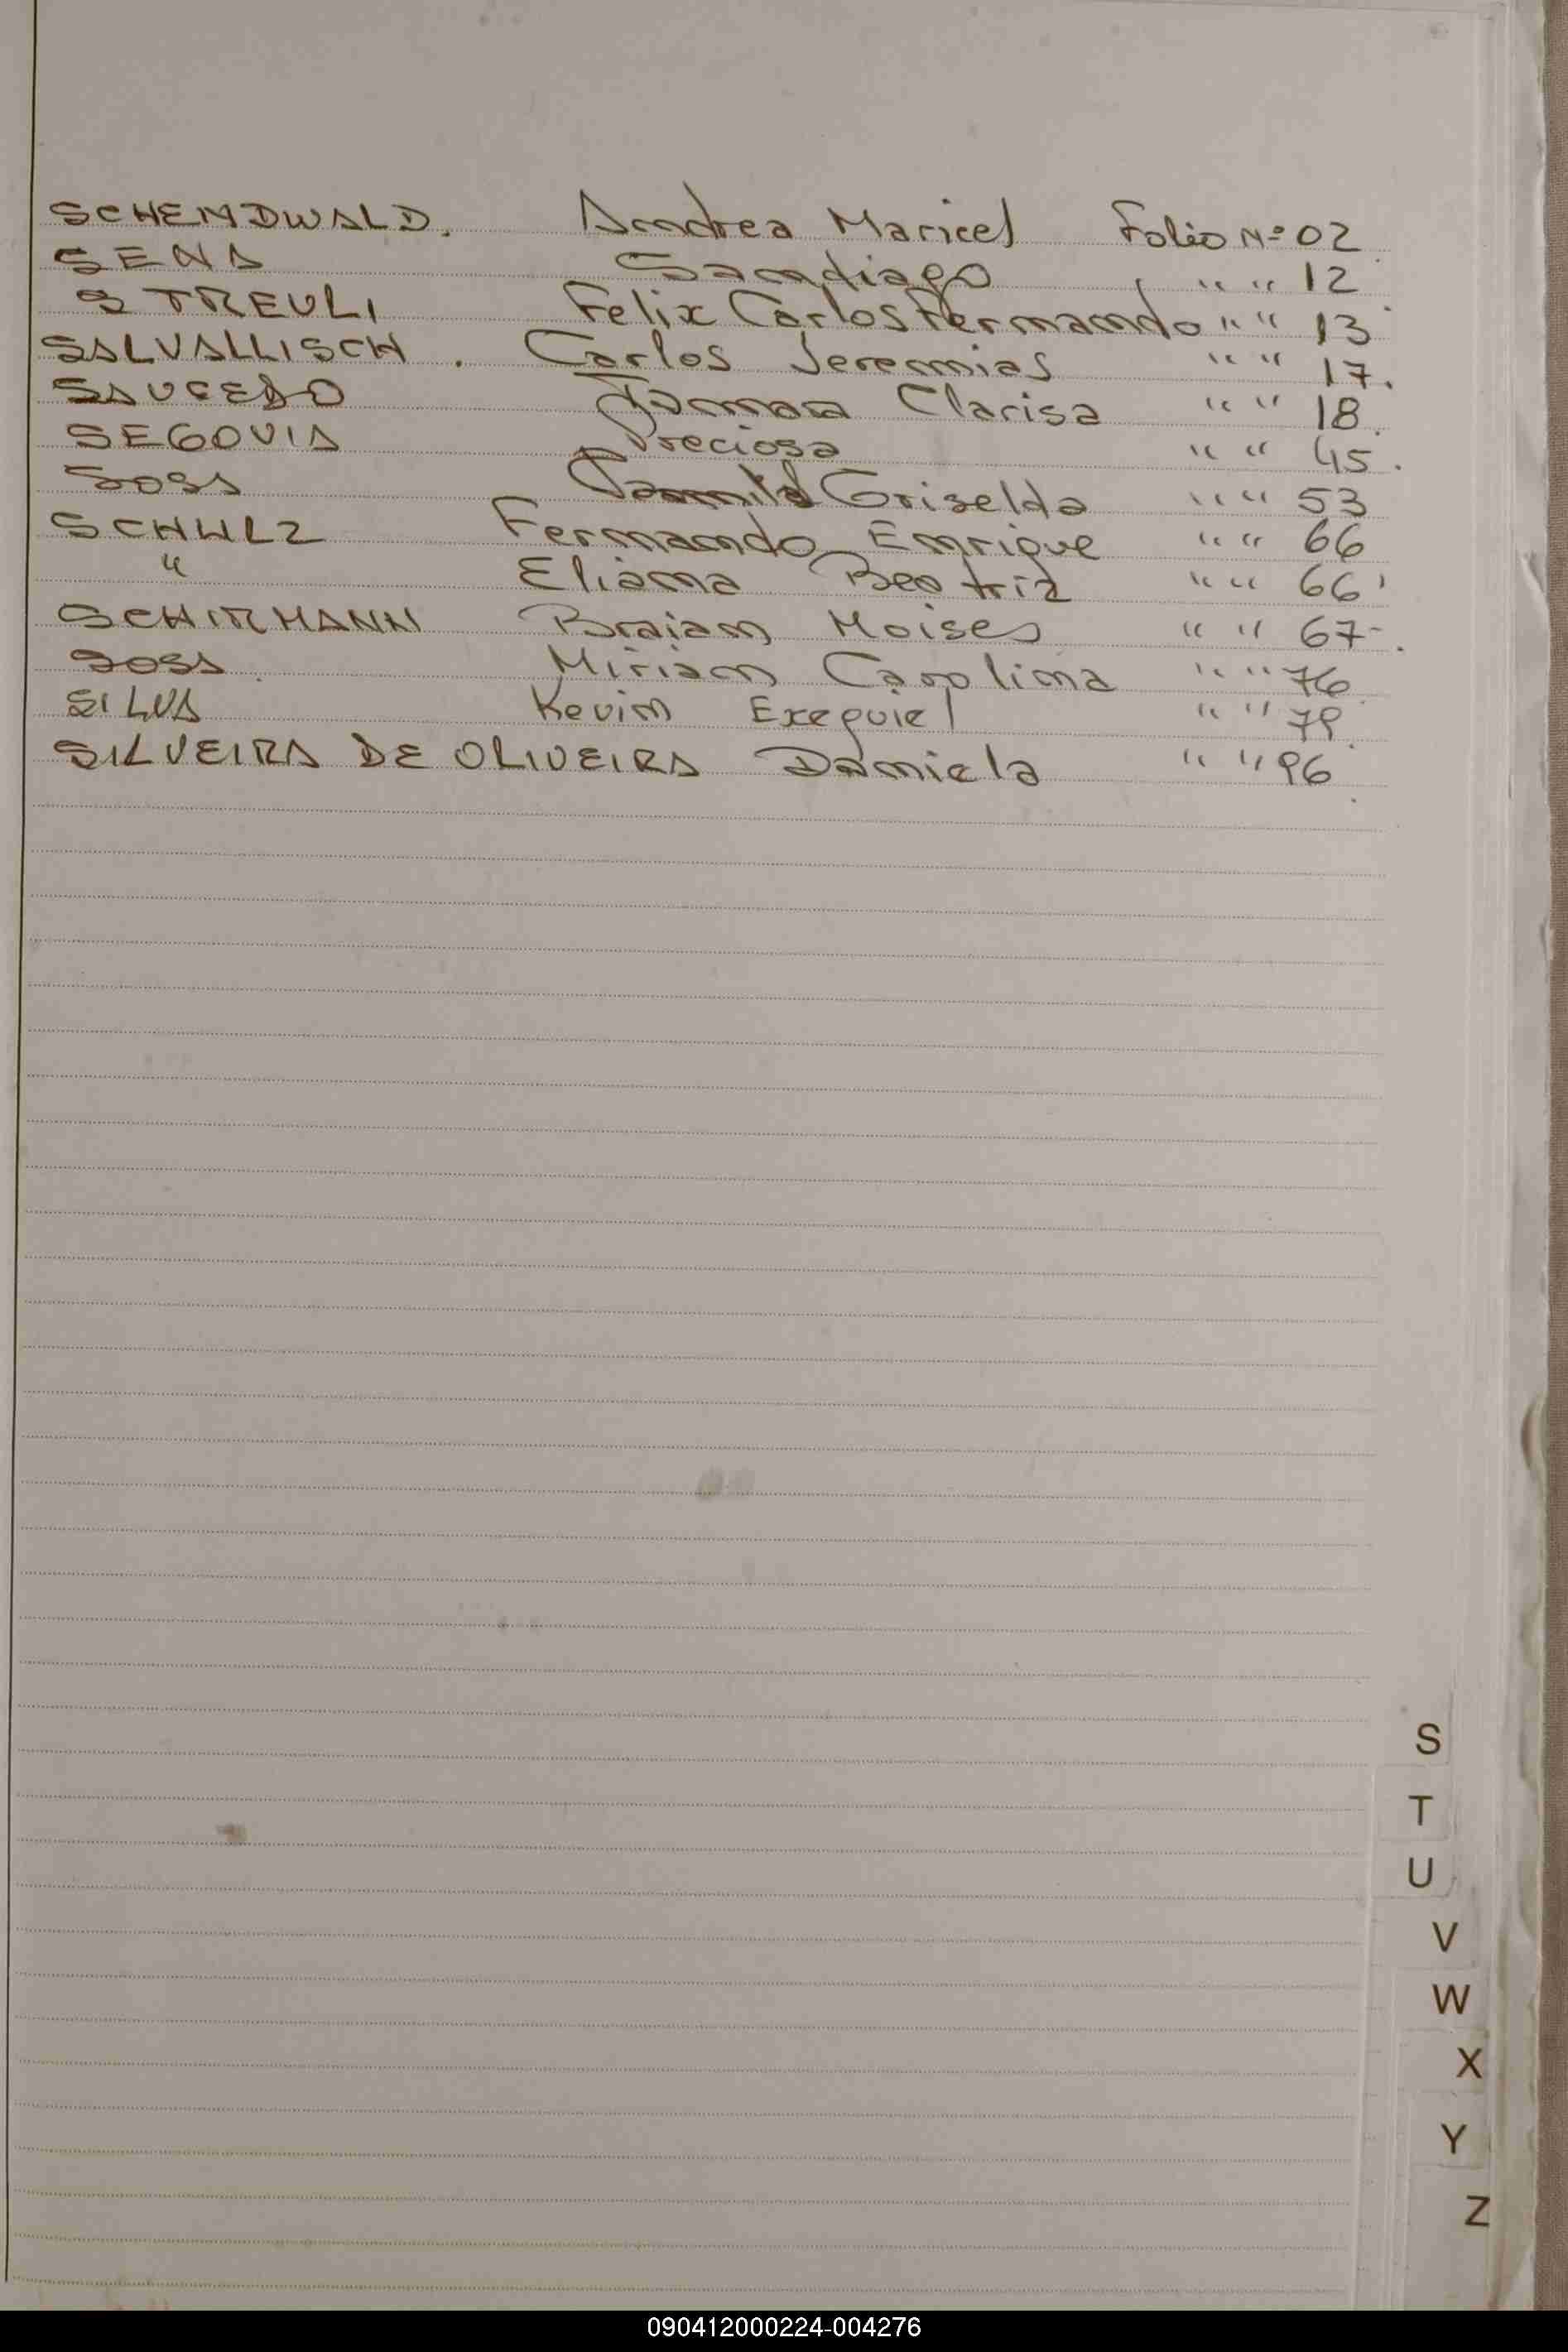 SCHENDWALD. Andrea Maricel Folio Nº 02
SENA Sandiago " " 12
STREULI Felix Carlos Fernando " " 13
SALVALLISCH . Carlos Jeremias " " 17.
SAUCEDO Clarisa " " 18.
SEGOVIA Preciosa " " 45.
SOSA Griselda " " 53
SCHULZ Fernando Enrique " " 66
" Eliana Beatriz " " 66
SCHIRMANN Braian Moises " " 67-.
SOSA. Miriam Carolina " " 76
SILVA Kevin Exequiel " " 79.
SILVEIRA DE OLIVEIRA Daniela " " 96.
S
T
U
V
W
X
Y
Z
090412000224-004276